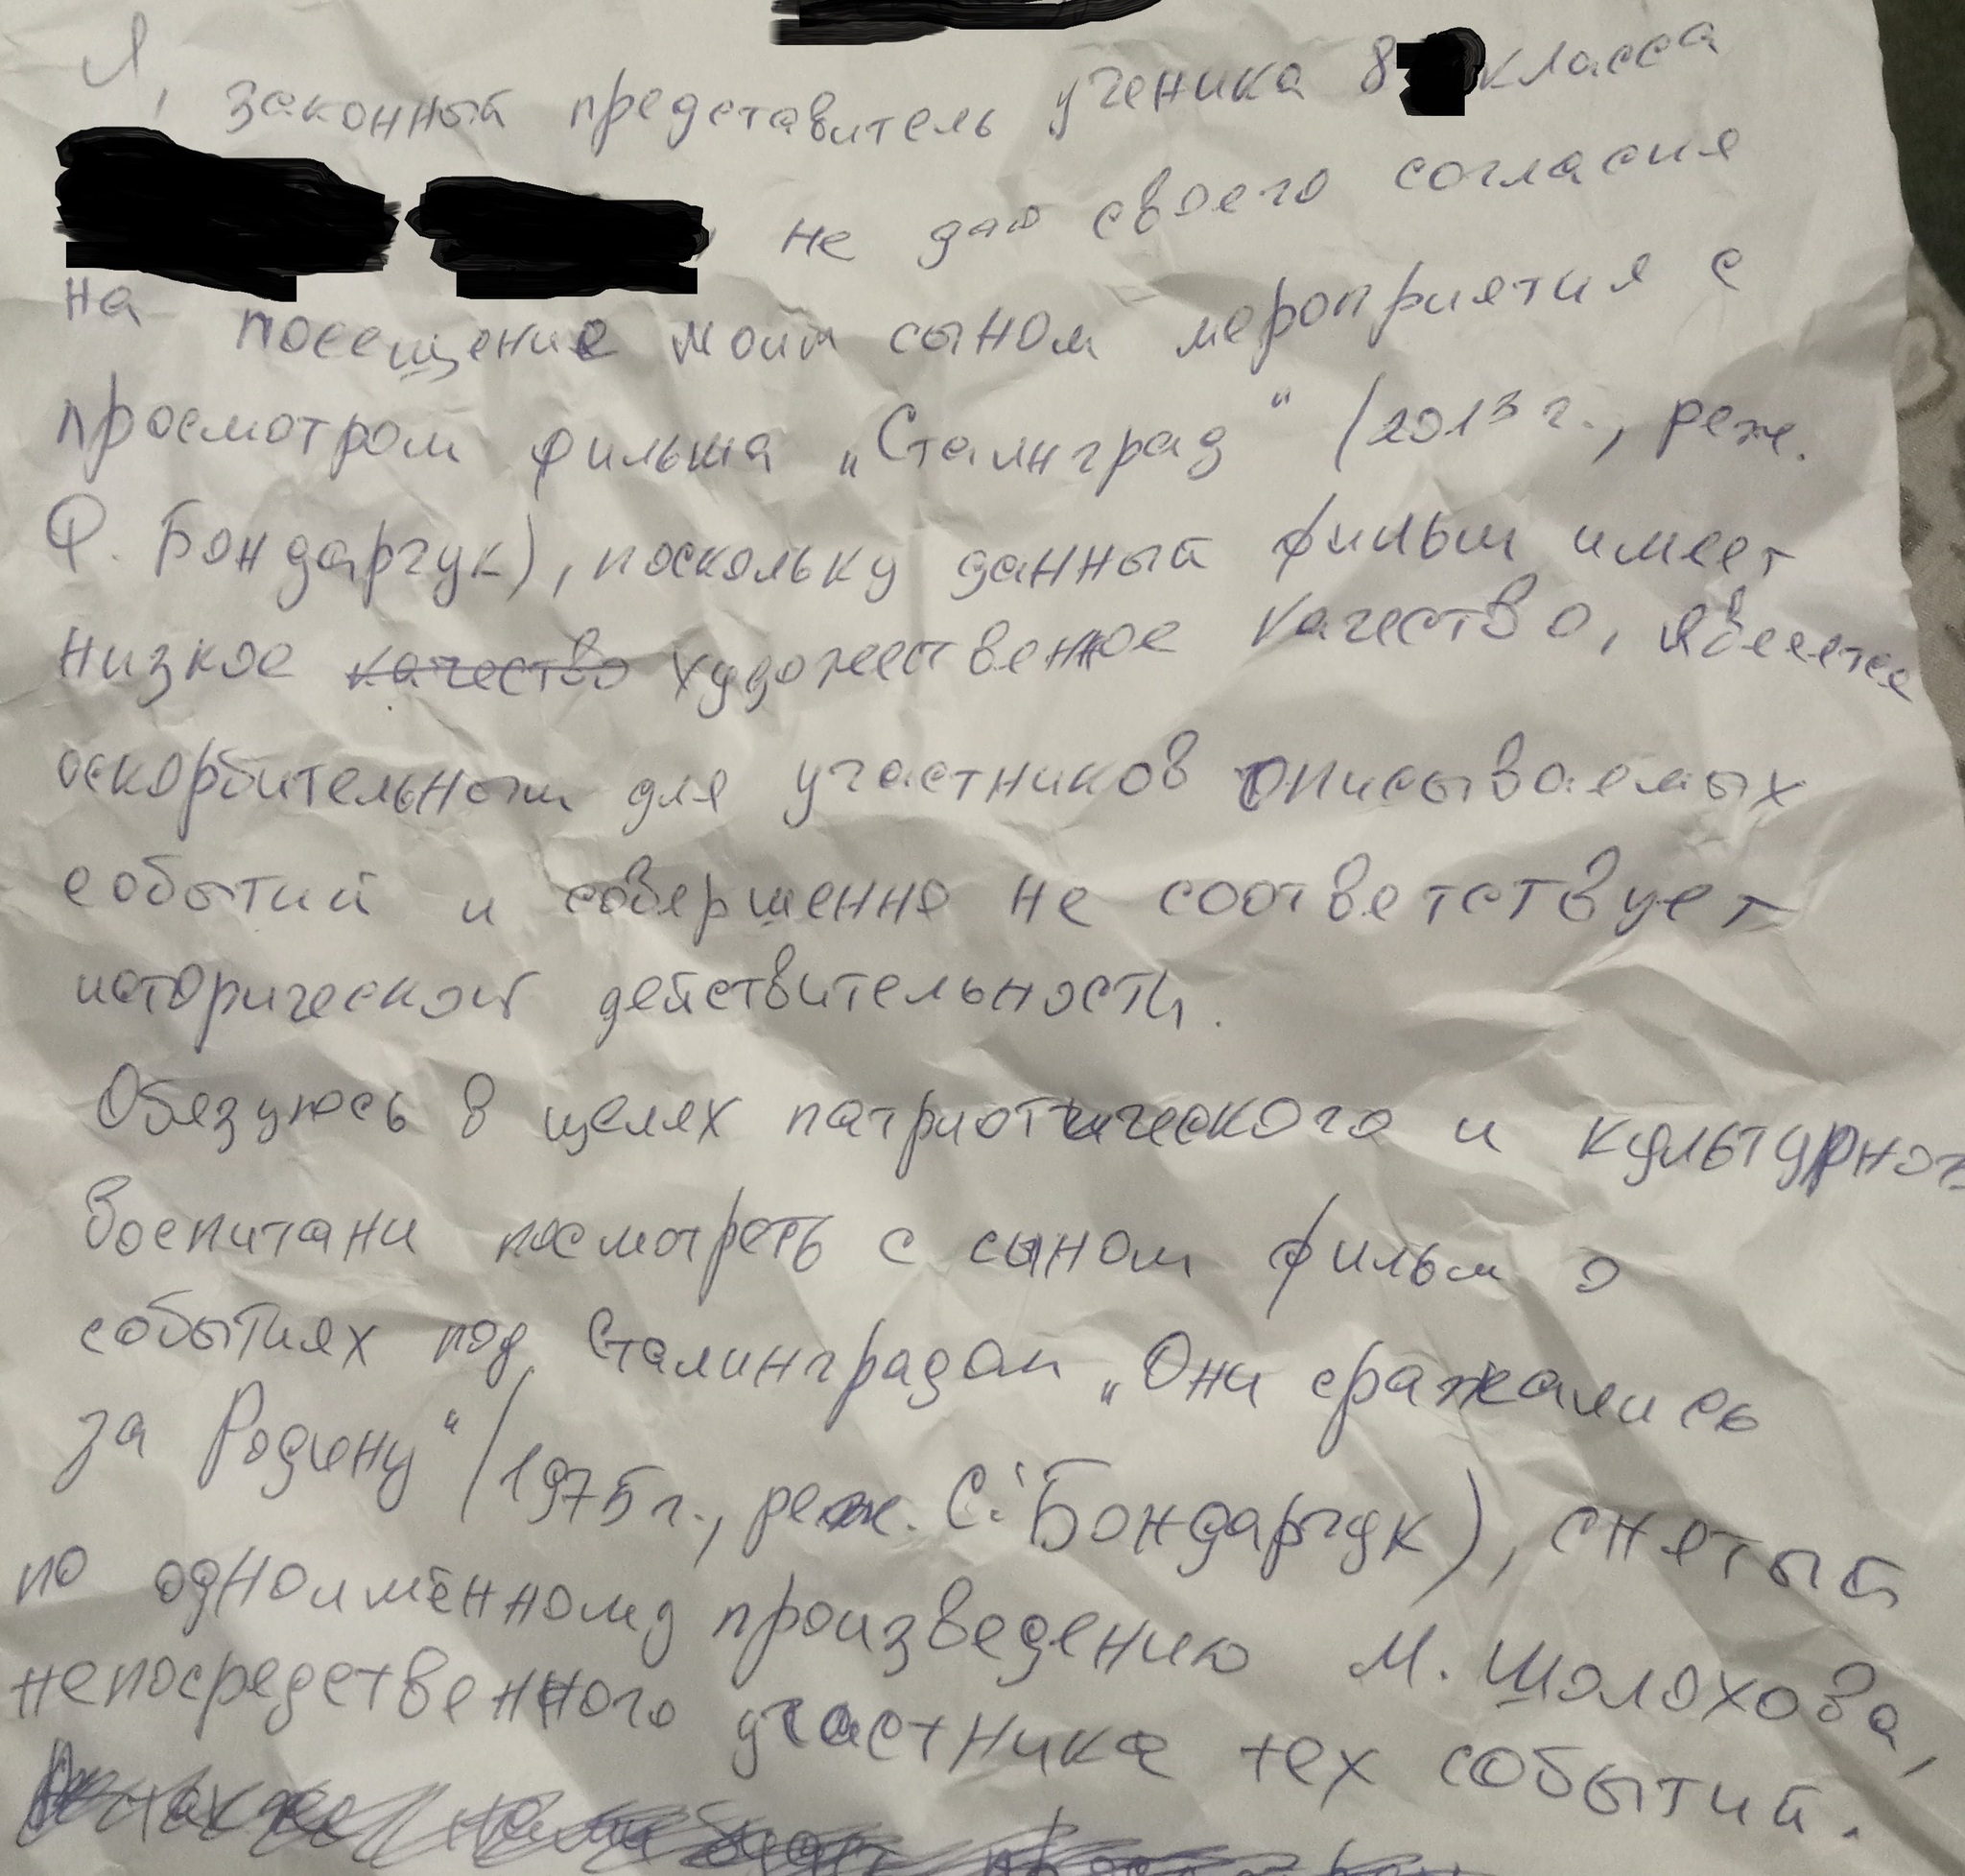 Я, законный представитель ученика 8 класса
не даю своего согласия
на посещение моим сыном мероприятия с
просмотром фильма „Сталинград“ (2013 г., реж.
Ф. Бондарчук), поскольку данный фильм имеет
низкое качество художественное качество, является
оскорбительным для участников описываемых
событий и совершенно не соответствует
исторической действительности.
Обязуюсь в целях патриотического и культурног
воспитани посмотреть с сыном фильм о
событиях под Сталинградом „Они сражались
за Родину“ (1975 г., реж. С. Бондарчук), снятый
по одноимённому произведению М. Шолохова,
непосредственного участника тех событий.